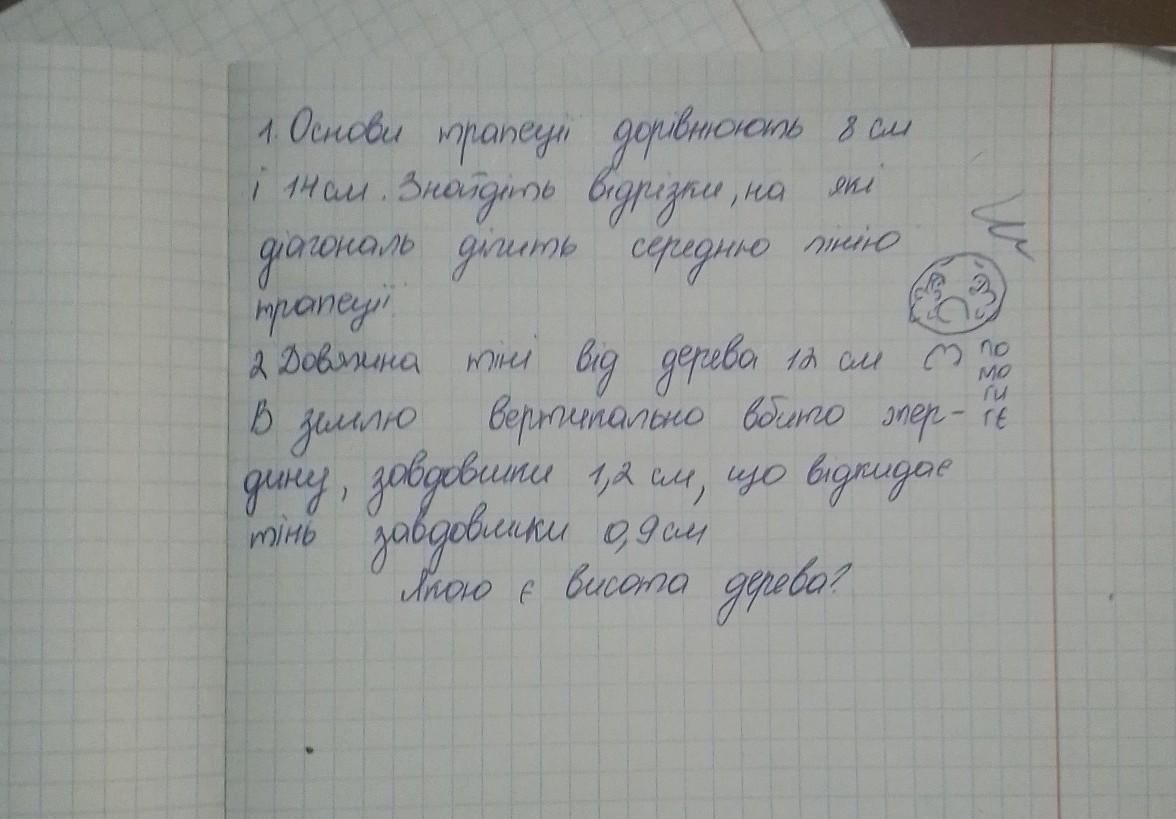 1. Основи трапеції дорівнюють 8 см
і 14 см. Знайдіть відрізки, на які
діагональ ділить середню лінію
трапеції.
2 Довжина тіні від дерева 12 см
В землю вертикально вбито жер-
дину, завдовшки 1,2 см, що відкидає
тінь завдовшки 0,9 см
Якою є висота дерева?
по
мо
ги
те